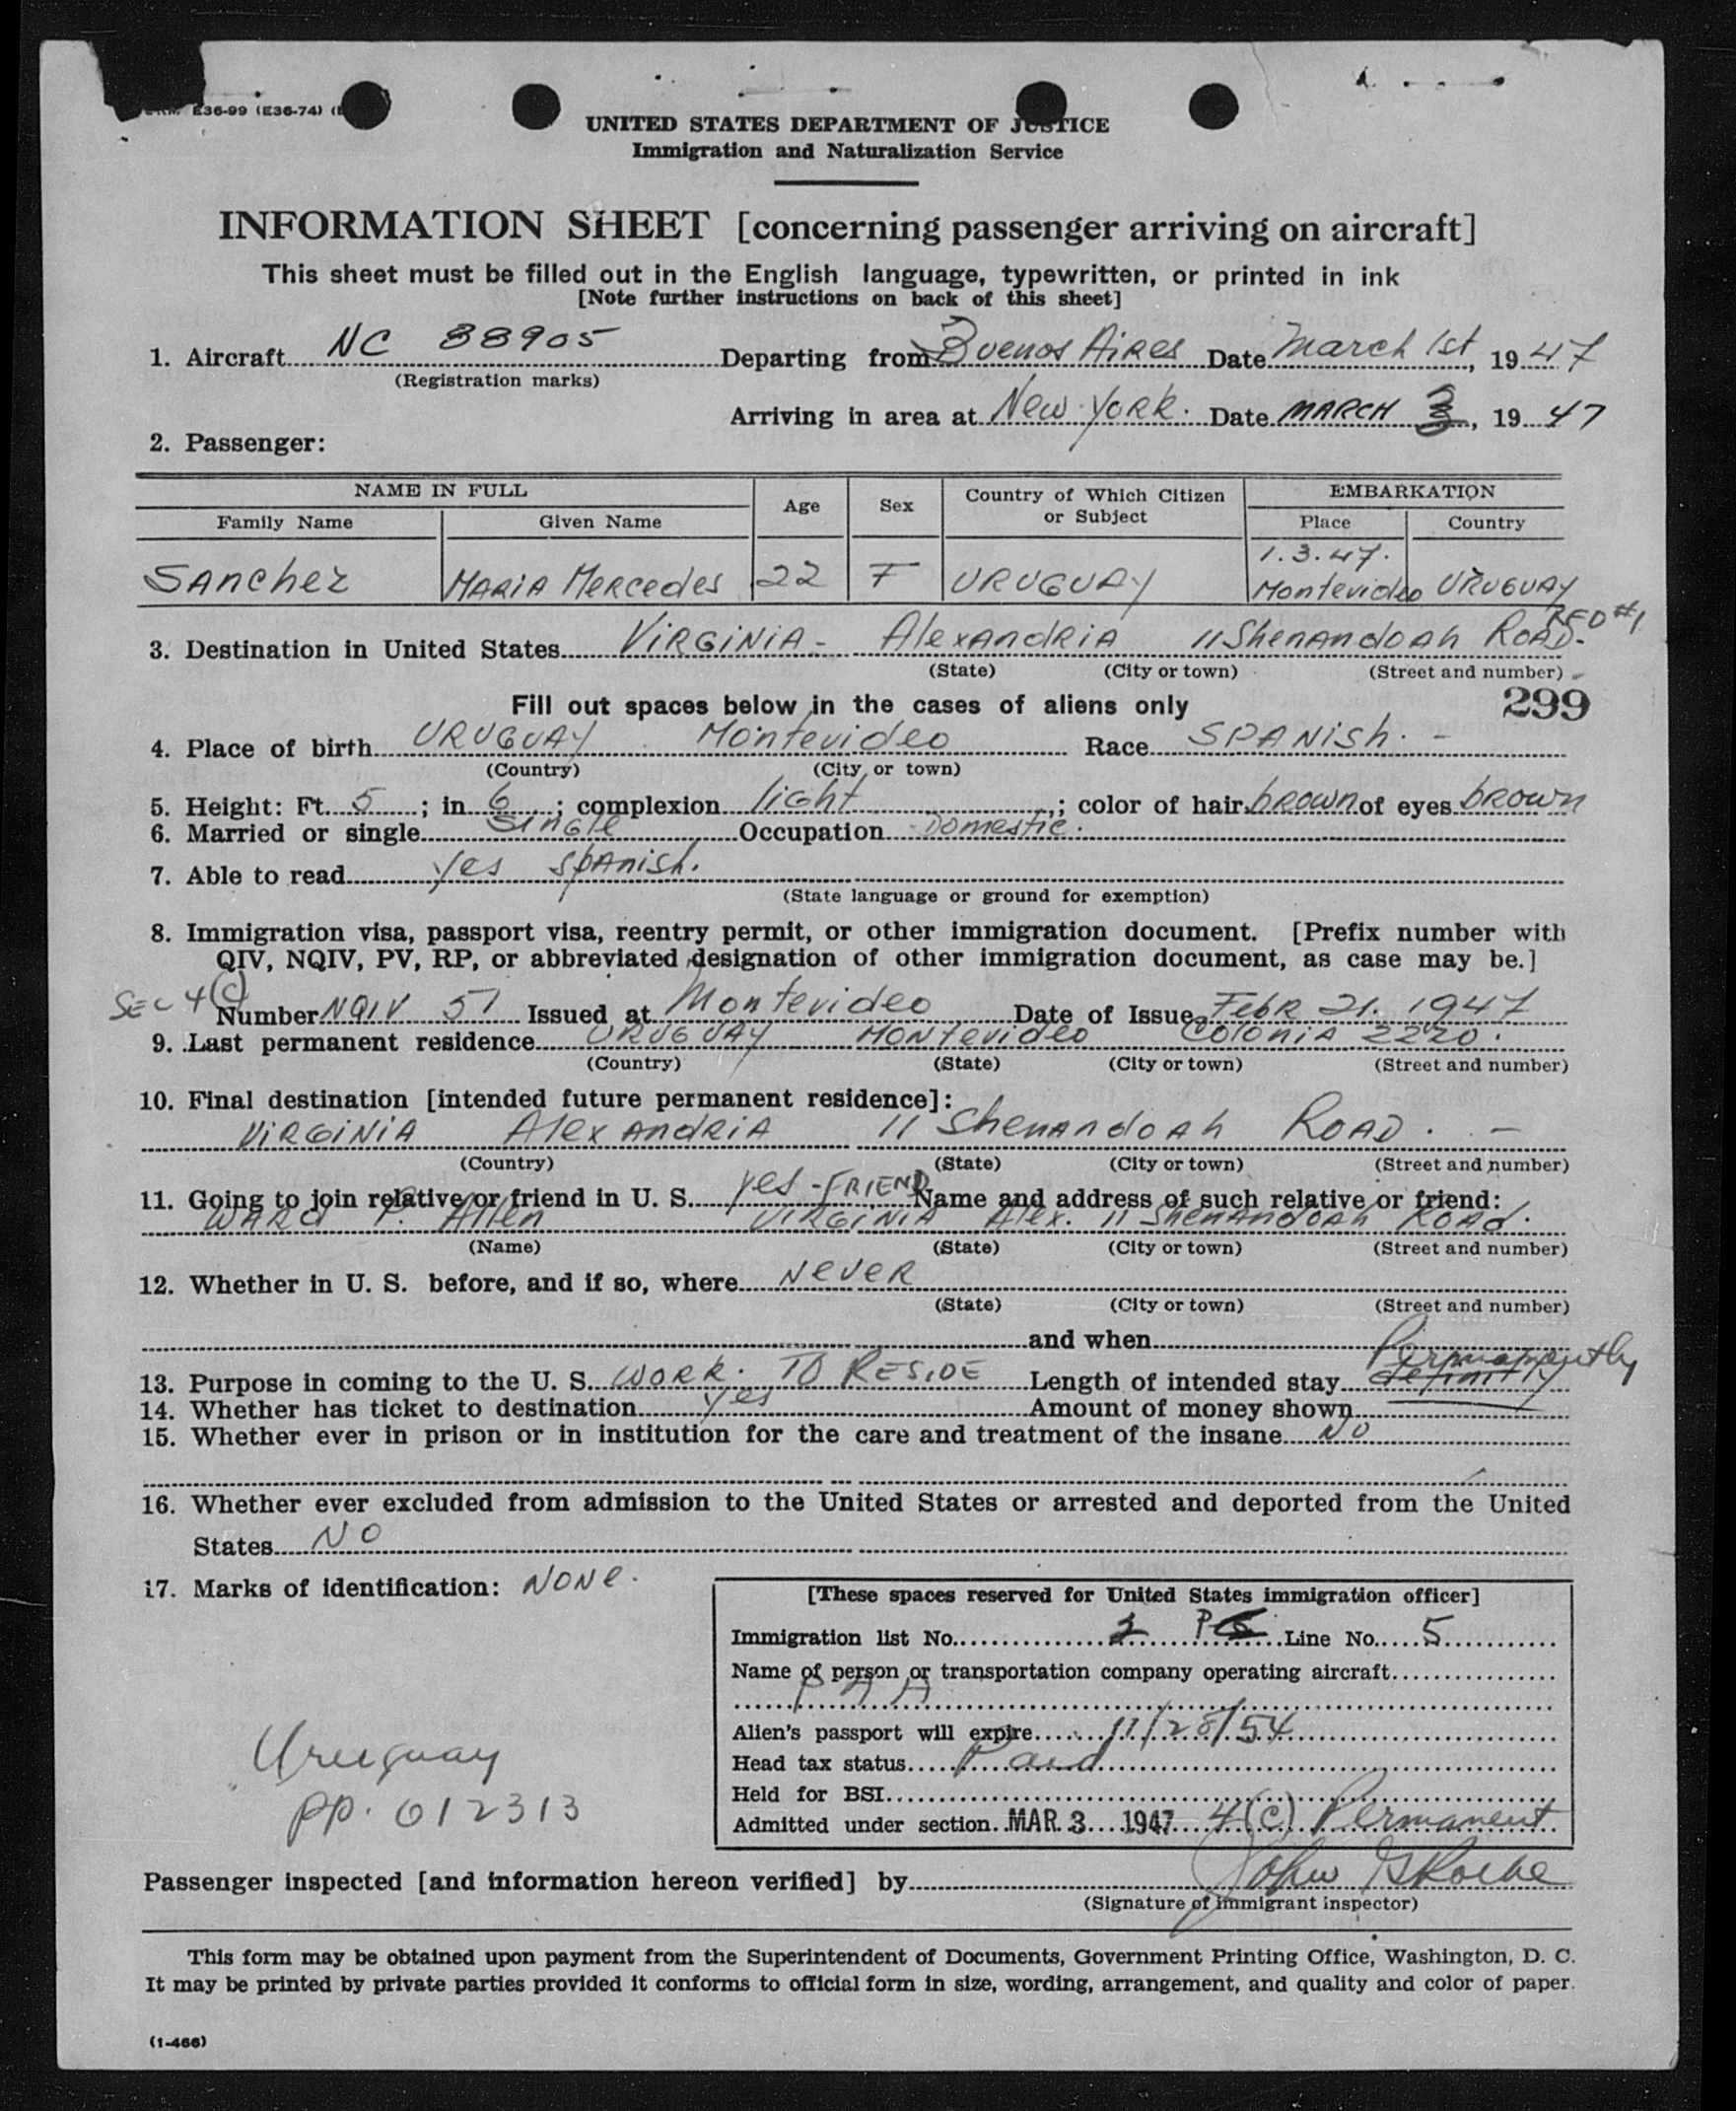 E36-99 (E36-74)
UNITED STATES DEPARTMENT OF JUSTICE
Immigration and Naturalization Service
INFORMATION SHEET [concerning passenger arriving on aircraft]
This sheet must be filled out in the English language, typewritten, or printed in ink
[Note further instructions on back of this sheet]
1. Aircraft NC 88905 Departing from Buenos Aires Date March 1st, 1947
(Registration marks)
Arriving in area at New York. Date MARCH 3, 1947
2. Passenger:
NAME IN FULL Age Sex Country of Which Citizen or Subject EMBARKATION
Family Name Given Name Place Country
1.3.47.
SAnchez MARiA MERcedes 22 F URUGUAY Montevideo URUGUAY
RFD #1
3. Destination in United States VIRGINIA - AlexAndRiA 11 ShenAndoah ROAD.
(State) (City or town) (Street and number)
Fill out spaces below in the cases of aliens only 299
4. Place of birth URUGUAY Montevideo Race SPANish. -
(Country) (City or town)
5. Height: Ft. 5 ; in. 6 ; complexion light ; color of hair brown of eyes brown
6. Married or single single Occupation Domestic.
7. Able to read yes spAnish.
(State language or ground for exemption)
8. Immigration visa, passport visa, reentry permit, or other immigration document. [Prefix number with
QIV, NQIV, PV, RP, or abbreviated designation of other immigration document, as case may be.]
SEC 4(C) Number NQIV 51 Issued at Montevideo Date of Issue FebR 21. 1947
9. Last permanent residence URUGUAY MONtevideo COloniA 2220.
(Country) (State) (City or town) (Street and number)
10. Final destination [intended future permanent residence]:
VIRGINIA AlexAndRiA 11 ShenAndoAh ROAD. -
(Country) (State) (City or town) (Street and number)
11. Going to join relative or friend in U. S. yes - FRIEND Name and address of such relative or friend:
WARd P. Allen VIRGINIA Alex. 11 ShenAndoAh ROAd.
(Name) (State) (City or town) (Street and number)
12. Whether in U. S. before, and if so, where NeveR
(State) (City or town) (Street and number)
and when
Permanently
13. Purpose in coming to the U. S. WORK. TO RESIDE Length of intended stay definitly
14. Whether has ticket to destination yes Amount of money shown
15. Whether ever in prison or in institution for the care and treatment of the insane NO
16. Whether ever excluded from admission to the United States or arrested and deported from the United
States NO
17. Marks of identification: NONe.
[These spaces reserved for United States immigration officer]
Immigration list No. 2 Line No. 5
Name of person or transportation company operating aircraft
PAA
Alien's passport will expire 11/28/54
Head tax status Paid
Held for BSI
Admitted under section MAR 3 1947 4(C) Permanent
Uruguay
PP. 012313
Passenger inspected [and information hereon verified] by John
(Signature of immigrant inspector)
This form may be obtained upon payment from the Superintendent of Documents, Government Printing Office, Washington, D. C.
It may be printed by private parties provided it conforms to official form in size, wording, arrangement, and quality and color of paper.
(1-466)